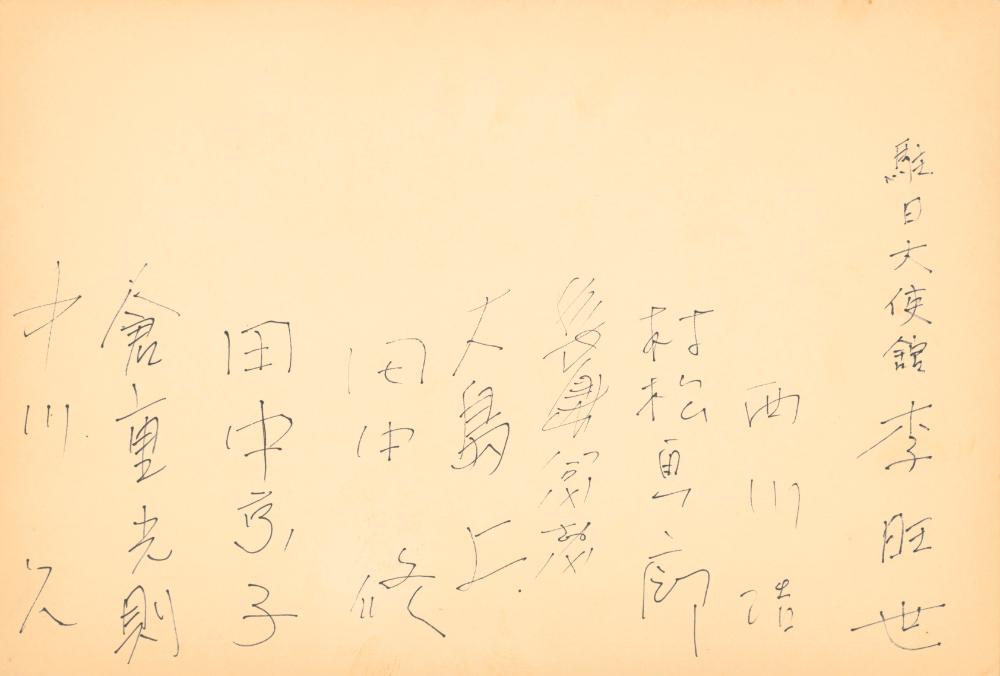 駐日大使館 李旺世
西川 浩
村松真郎
大島上
田中 修
田中京子
倉重光則
中川 久